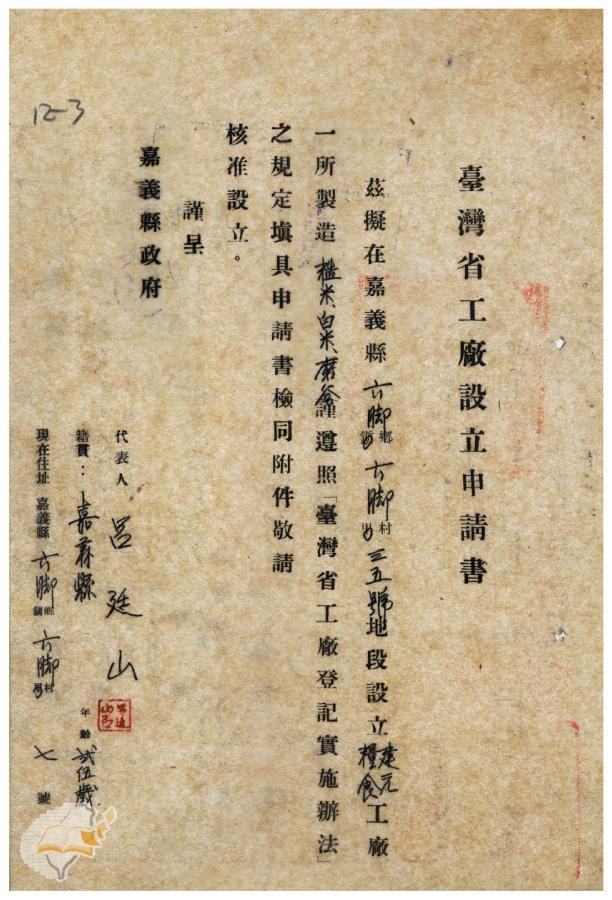 臺灣省工廠設立申請書
茲擬在嘉義縣六脚鄉鎮六脚村里三五號地段設立建元糧食工廠
一所製造糙米、白米、磨谷謹遵照「臺灣省工廠登記實施辦法」
之規定塡具申請書檢同附件敬請
核准設立。
謹呈
嘉義縣政府
代表人 呂廷山
年齡 弍伍歲
籍貫：嘉義縣
現在住址 嘉義縣六脚鄉鎮六脚村里七號
12-3